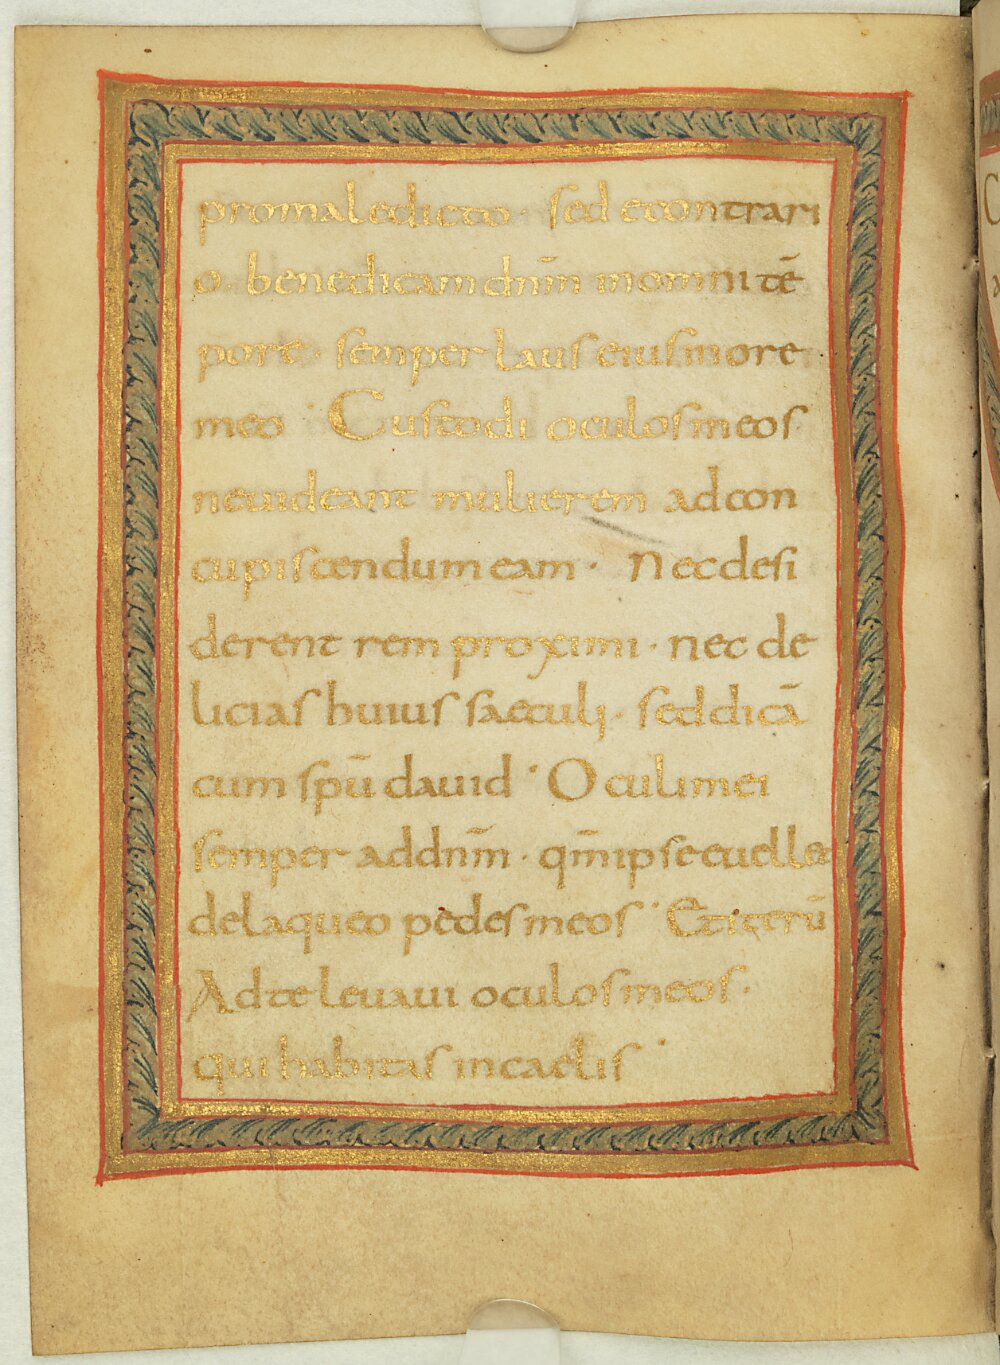 promaledicto · sed econtrari
o · benedicam dnm̄ inomni tē
pore · semper laus eius inore
meo · Custodi oculos meos
neuideant mulierem adcon
cupiscendum eam · Nec desi
derent rem proximi · nec de
licias huius saeculi · sed dicā
cum spū dauid · Oculi mei
semper ad dnm̄ · qm̄ ipse euellet
delaqueo pedes meos · Et iterū
Ad te leuaui oculos meos ·
qui habitas in caelis ·